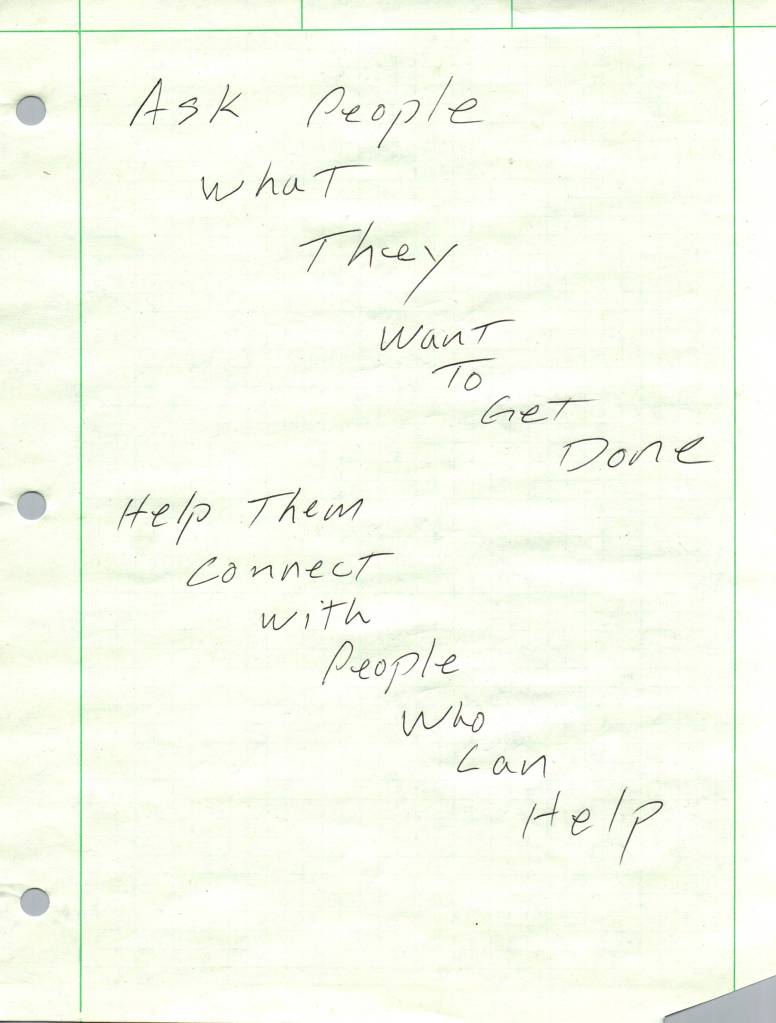 Ask People
what
They
want
To
Get
Done
Help Them
connect
with
People
who
can
Help